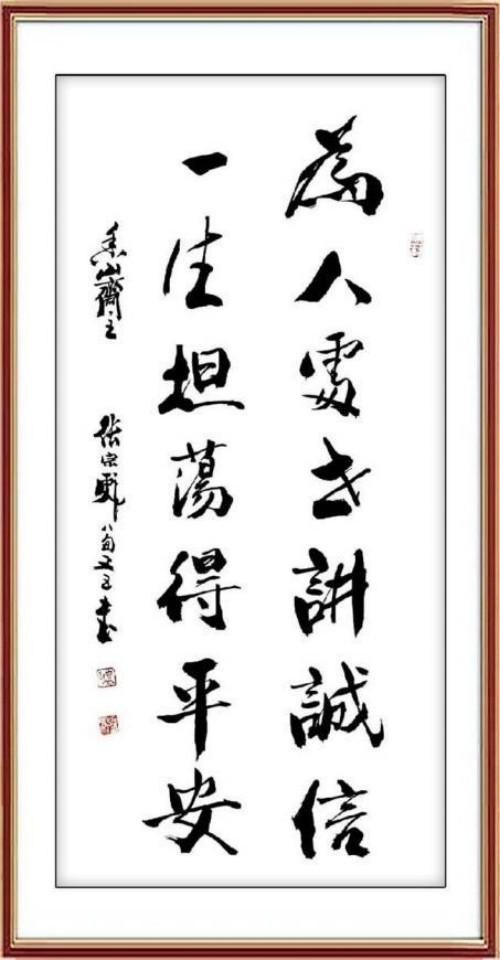 為人處世講誠信
一生坦蕩得平安
香山齋主
張宗彪八旬又五書